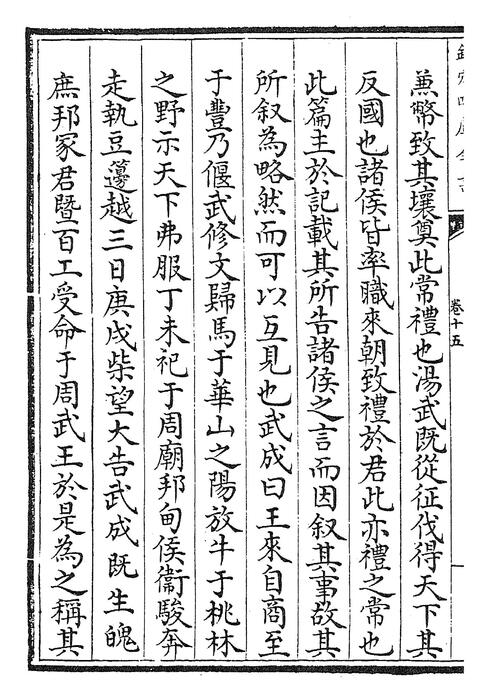 欽定四庫全書
卷十五
兼幣致其壤奠此常禮也湯武既從征伐得天下其
反國也諸侯皆率職來朝致禮於君此亦禮之常也
此篇主於記載其所告諸侯之言而因叙其事故其
所叙為略然而可以互見也武成曰王來自商至
于豐乃偃武修文歸馬于華山之陽放牛于桃林
之野示天下弗服丁未祀于周廟邦甸侯衞駿奔
走執豆籩越三日庚戌柴望大告武成既生魄
庶邦冢君暨百工受命于周武王於是為之稱其